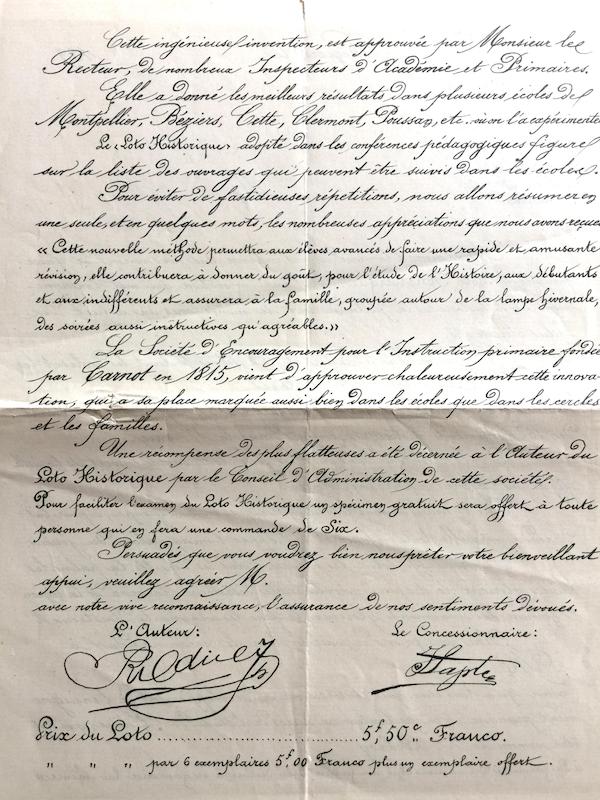 Cette ingénieuse invention, est approuvée par Monsieur le
Recteur, de nombreux Inspecteurs d'Académie et Primaires.
Elle a donné les meilleurs résultats dans plusieurs écoles de
Montpellier, Béziers, Cette, Clermont, Poussan, etc. où on l'a expérimenté
Le «Loto Historique» adopté dans les conférences pédagogiques figure
sur la liste des ouvrages qui peuvent être suivis dans les écoles.
Pour éviter de fastidieuses répétitions, nous allons résumer en
une seule, et en quelques mots, les nombreuses appréciations que nous avons reçues
« Cette nouvelle méthode permettra aux élèves avancés de faire une rapide et amusante
révision, elle contribuera à donner du goût, pour l'étude de l'Histoire, aux débutants
et aux indifférents et assurera à la famille, groupée autour de la lampe hivernale,
des soirées aussi instructives qu'agréables.»
La Société d'Encouragement pour l'Instruction primaire fondée
par Carnot en 1815, vient d'approuver chaleureusement cette innova-
tion, qui a sa place marquée aussi bien dans les écoles que dans les cercles
et les familles.
Une récompense des plus flatteuses a été décernée à l'Auteur du
Loto Historique par le Conseil d'Administration de cette société.
Pour faciliter l'examen du Loto Historique un spécimen gratuit sera offert à toute
personne qui en fera une commande de Six.
Persuadés que vous voudrez bien nous prêter votre bienveillant
appui, veuillez agréer M.
avec notre vive reconnaissance, l'assurance de nos sentiments dévoués.
L'Auteur: Le Concessionnaire:
Prix du Loto .......... 5f,50c Franco.
" " " par 6 exemplaires 5f,00 Franco plus un exemplaire offert.